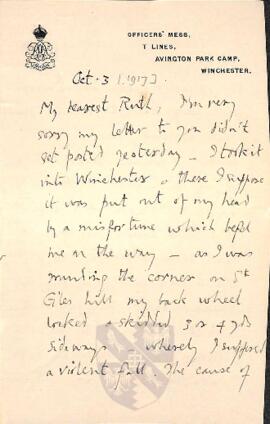 OFFICERS' MESS,
T LINES,
AVINGTON PARK CAMP,
WINCHESTER.
Oct. 3 [1917]
My dearest Ruth, I'm very
sorry my letter to you didn't
get posted yesterday – I took it
into Winchester & there I suppose
it was put out of my head
by a misfortune which befel
me on the way – as I was
rounding the corner on St
Giles hill my back wheel
locked & skidded 3 or 4 yds
sideways whereby I suffered
a violent fall. The cause of